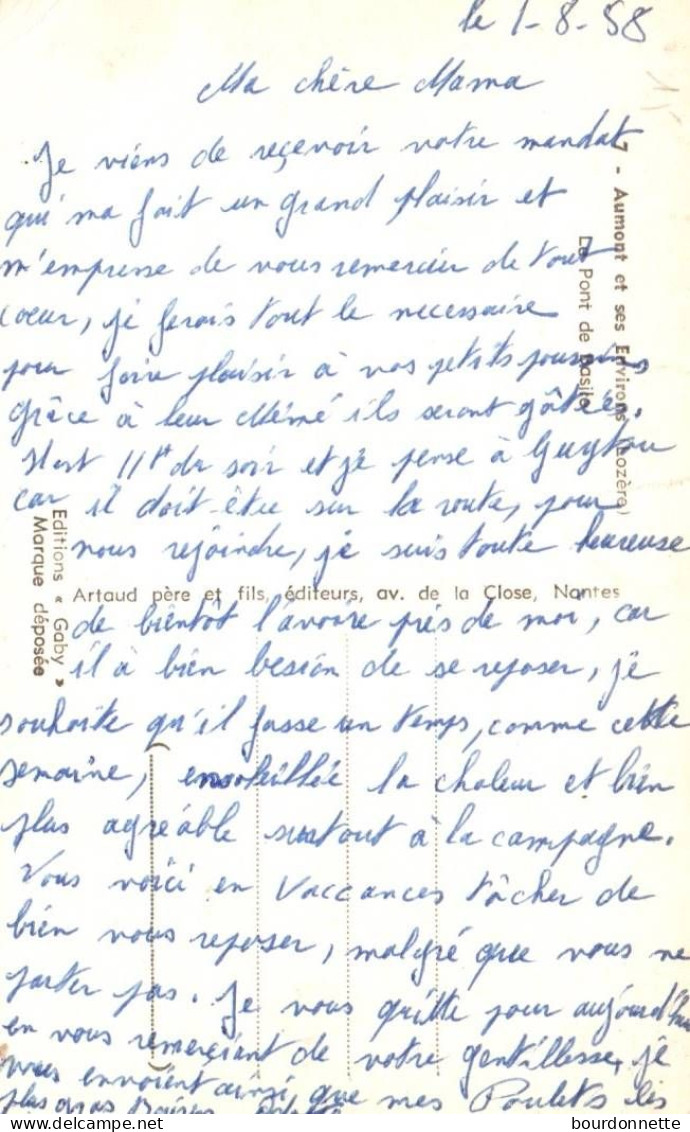 le 1-8-58
Ma chère Mama
Je viens de reçevoir votre mandat
qui ma fait un grand plaisir et
m'empresse de vous remercier de tout
coeur, je ferais tout le necessaire
pour faire plaisir à vos petits poussins,
grâce à leur Mémé ils seront gâtés.
Il est 11h du soir et je pense à
car il doit être sur la route, pour
nous rejoindre, je suis toute heureuse
de bientôt l'avoire près de moi, car
il à bien besion de se reposer, je
souhaite qu'il fasse un temps, comme cette
semaine, ensoleillée la chaleur et bien
plus agréable surtout à la campagne.
Vous voici en Vaccances tâcher de
bien vous reposer, malgré que vous ne
partez pas. Je vous quitte pour aujourd'hui
en vous remerçiant de votre gentillesse, je
vous envoient ainsi que mes Poulets les
plus gros Baisers
7 - Aumont et ses Environs (Lozère)
Le Pont de Basile
Editions « Gaby »
Marque déposée
Artaud père et fils, éditeurs, av. de la Close, Nantes
© bourdonnette